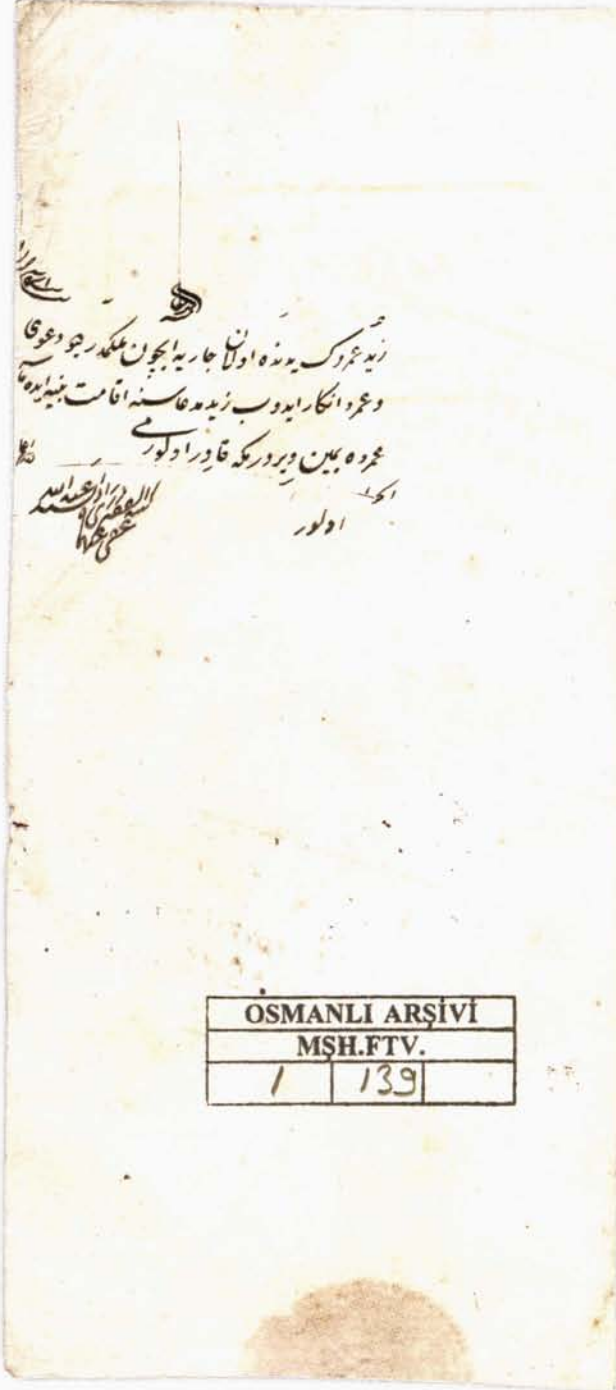 زيد عمروك يدنده اولان جاريه ايچون ملكمدر ديو دعوى
وعمرو انكار ايدوب زيد مدعاسنه اقامت بينه ايده
عمروه يمين ويردرمكه قادر اولورمى
الجواب
اولور
كتبه الفقير
عفى عنهما
OSMANLI ARŞİVİ
MŞH.FTV.
1 139